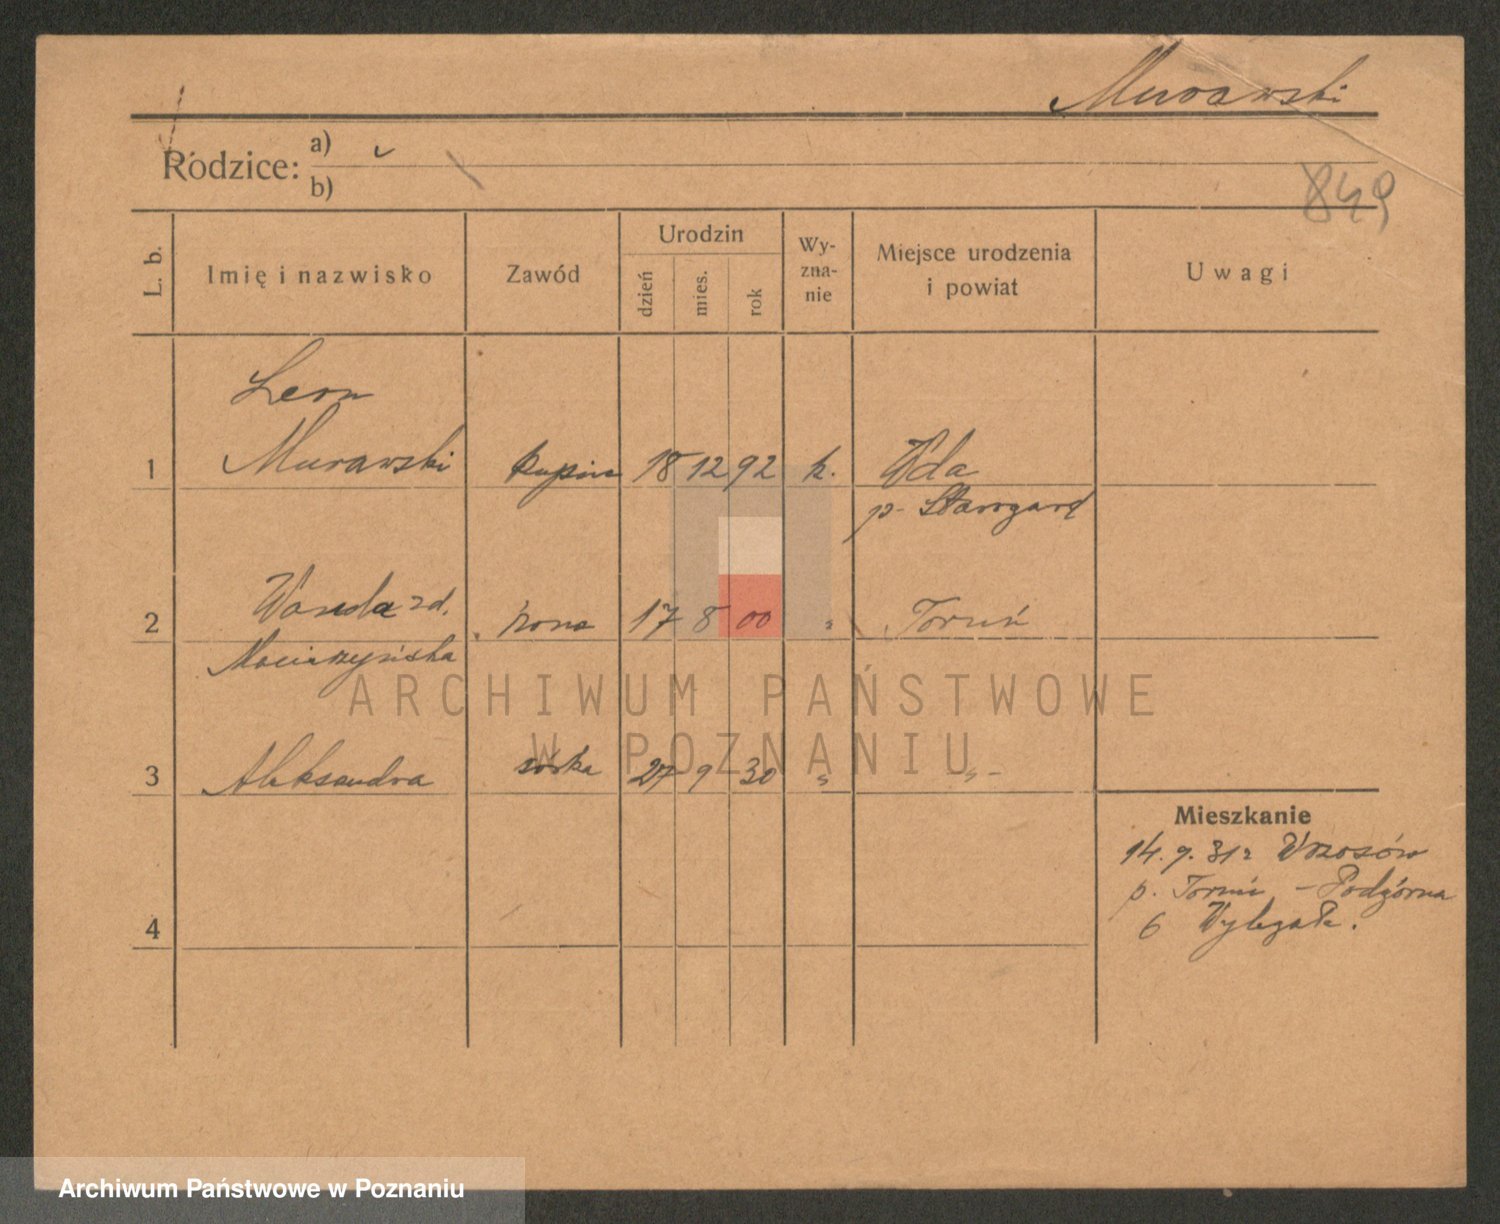 Murawski
Rodzice: a)
b)
849
L. b.
Imię i nazwisko
Zawód
Urodzin
dzień
mies.
rok
Wy-
zna-
nie
Miejsce urodzenia
i powiat
Uwagi
Leon
1 Murawski kupiec 18 12 92 k. Wda
p. Starogard
Wanda zd.
2 żona 17 8 00 " Toruń
3 Aleksandra córka 27 9 30 " - " -
4
Mieszkanie
14. 9. 31 z Wrzosów
p. Toruń - Podgórna
6
ARCHIWUM PAŃSTWOWE
W POZNANIU
Archiwum Państwowe w Poznaniu